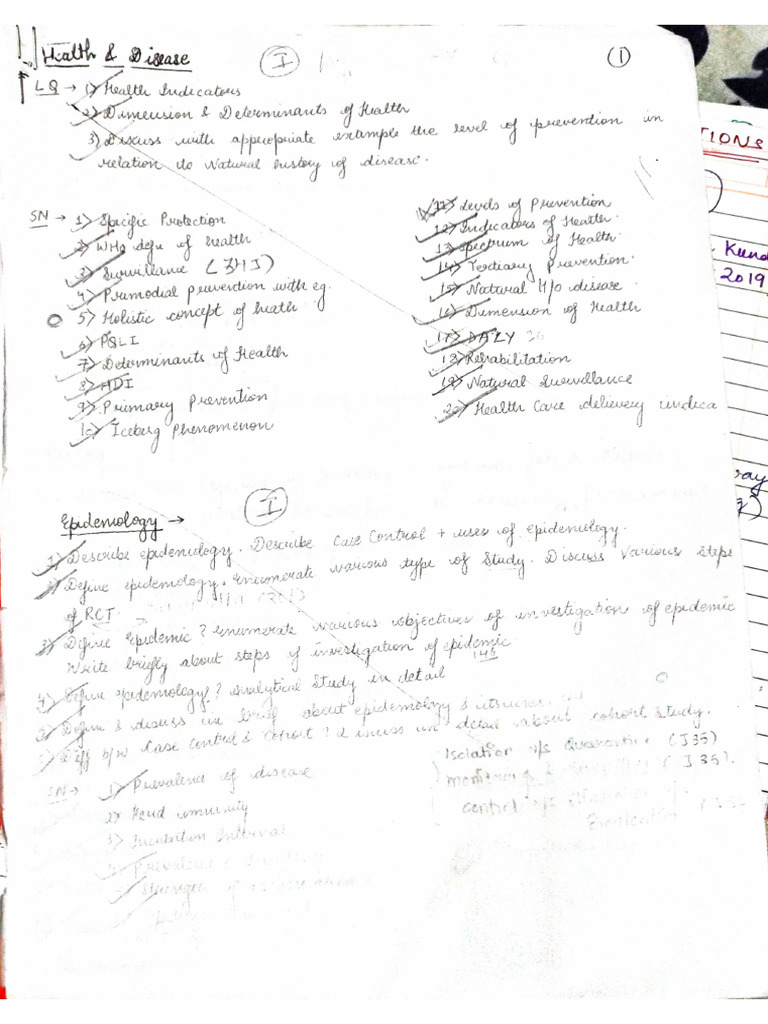 Health & Disease
I
1
LQ → 1) Health Indicators
2) Dimension & Determinants of Health
3) Discuss with appropriate example the level of prevention in
relation to Natural history of disease.
SN → 1) Specific Protection
2) WHO defn of health
3) Survillance (3HJ)
4) Primodial prevention with eg.
5) Holistic concept of heath
6) PQLI
7) Determinants of Health
8) HDI
9) Primary Prevention
10) Iceberg Phenomenon
11) Levels of Prevention
12) Indicators of Health
13) Spectrum of Health
14) Tertiary Prevention
15) Natural H/o disease
16) Dimension of Health
17) DALY
18) Rehabilitation
19) Natural Survillance
20) Health Care delivery indica
TIONS
2019
I
Epidemology →
1) Describe epidemiology. Describe Case Control + uses of epidemiology.
2) Define epidemology. enumerate various type of Study. Discuss Various steps
of RCT.
3) Define Epidemic? enumerate various objectives of investigation of epidemic
Write briefly about steps of investigation of epidemic.
4) Define epidemology? Analytical Study in detail
5) Define & discuss in brief about epidemology & its uses.
6) Diff b/w Case Control & Cohort? Discuss in detail about cohort study.
SN → 1) Prevalence of disease
2) Herd immunity
3) Incubation Interval
4) Prevalence &
5) Strength of association
Isolation v/s Quarantine (J35)
(J35).
control v/s